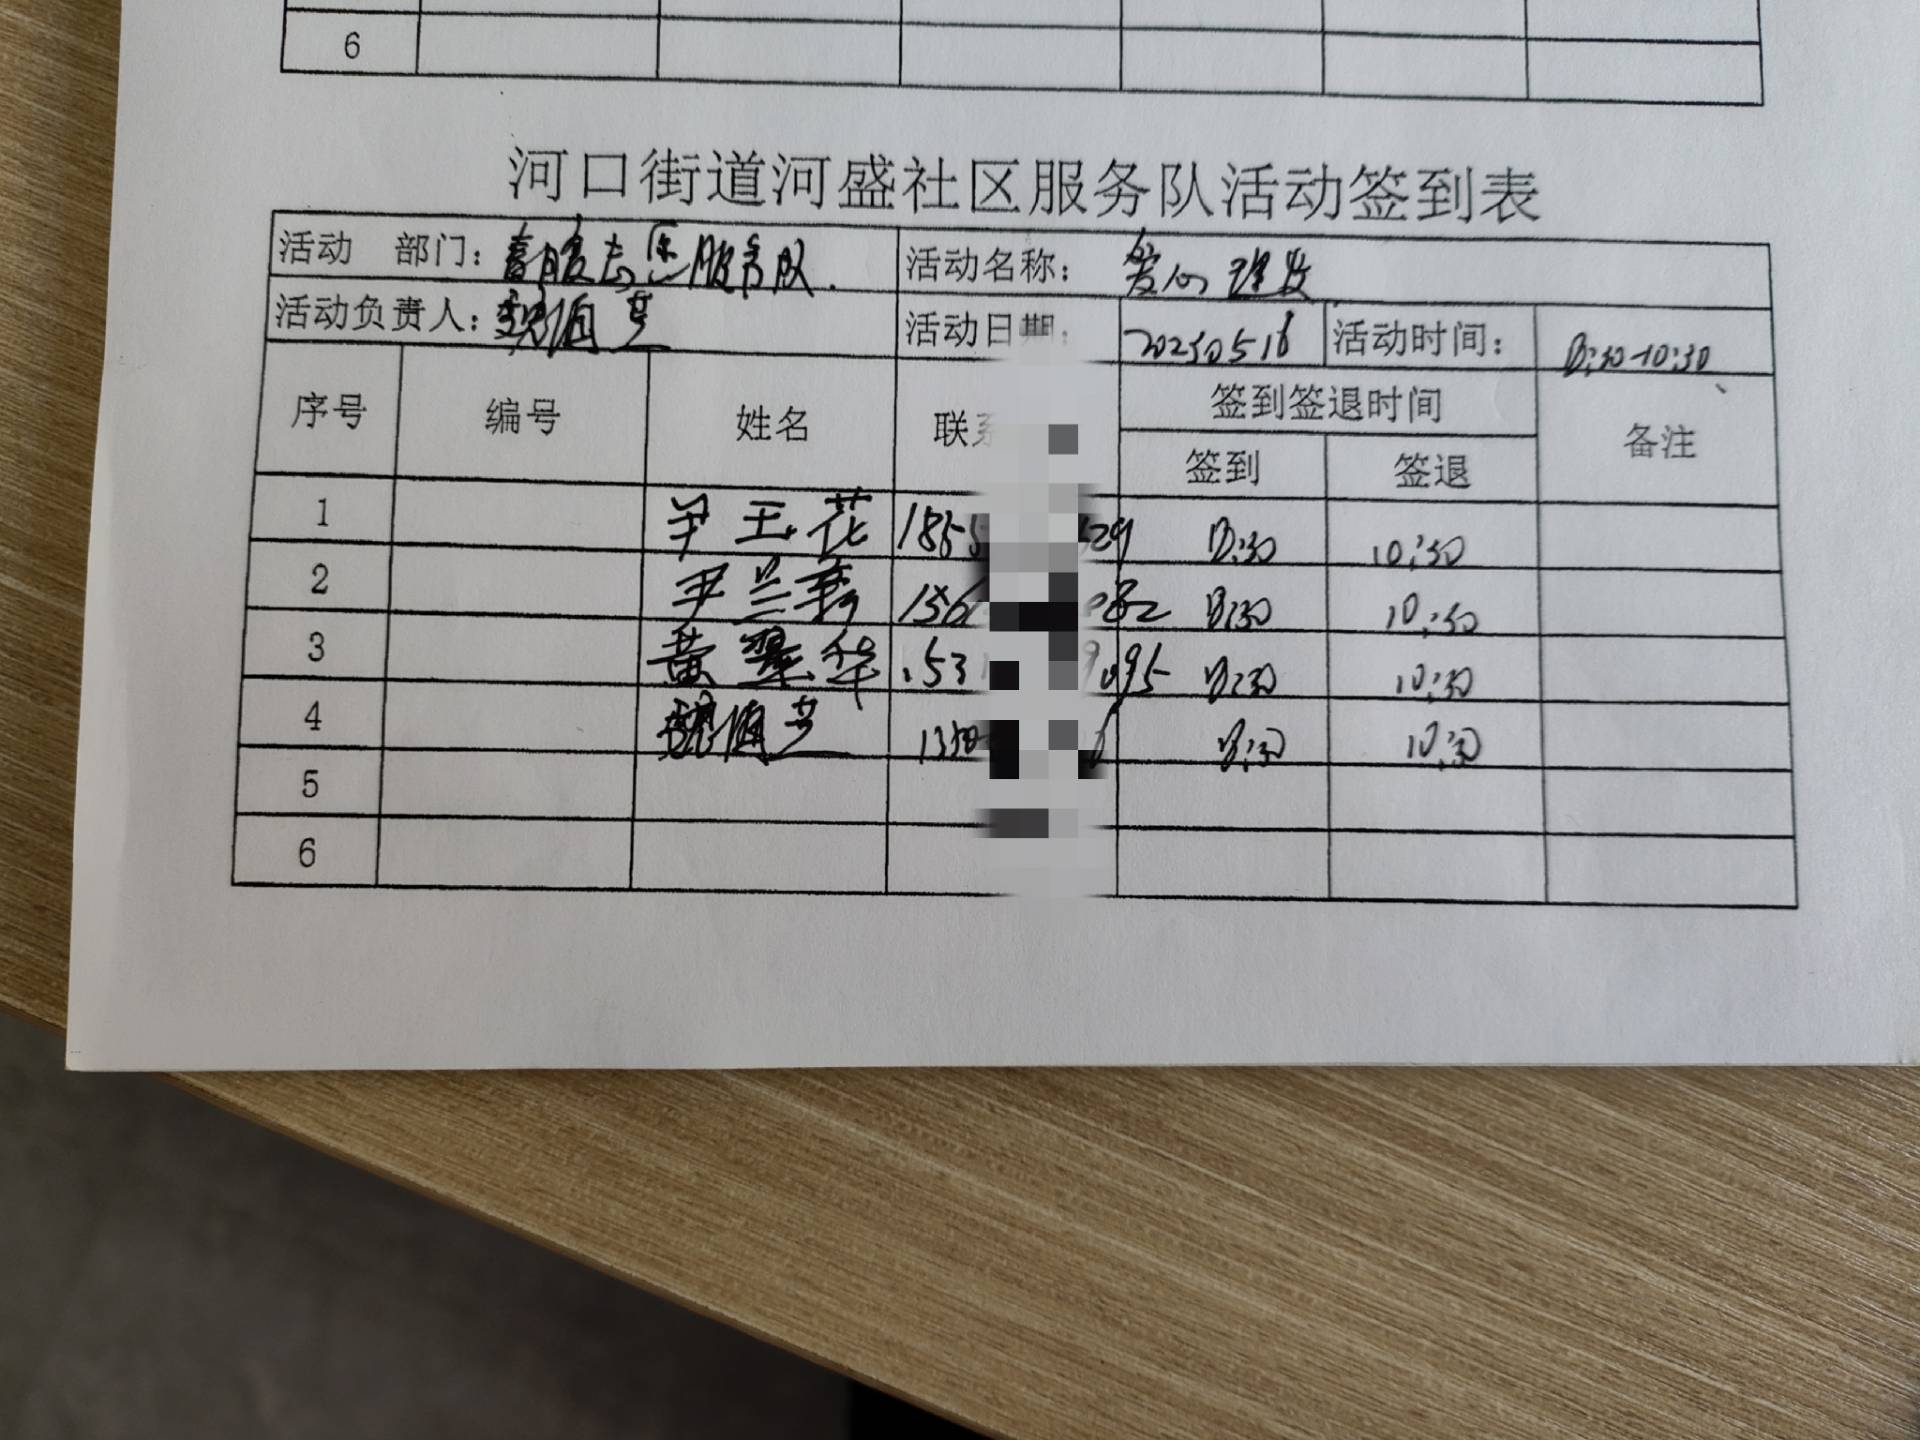 6
河口街道河盛社区服务队活动签到表
活动 部门： 服务队 活动名称： 爱心理发
活动负责人： 活动日期： 20230516 活动时间： 8:30-10:30
序号 编号 姓名 联系 签到签退时间 备注
签到 签退
1 185 529 8:30 10:30
2 尹兰秀 156 82 8:30 10:30
3 黄翠华 1531 9095 8:30 10:30
4 8:30 10:30
5
6